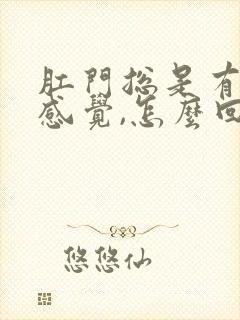 肛門總是有
感覺,怎麼回
悠悠仙